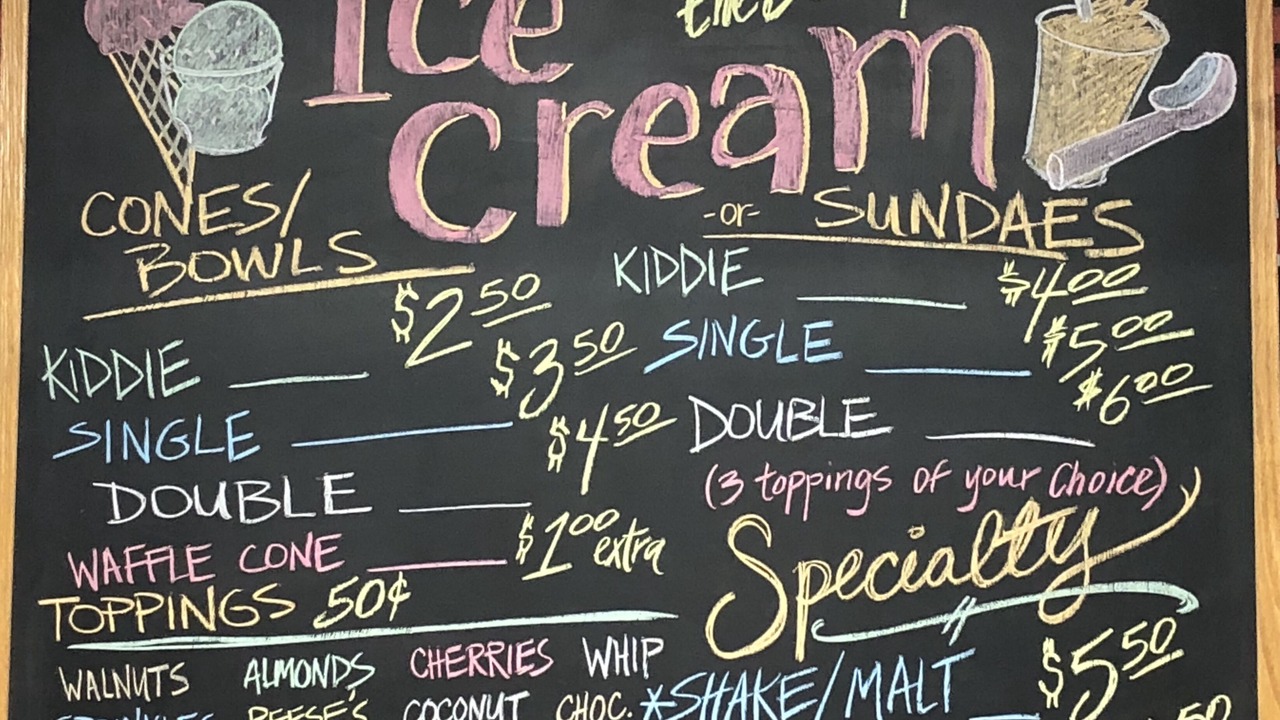 Ice
cream
CONES/
BOWLS
KIDDIE $2.50
SINGLE $3.50
DOUBLE $4.50
WAFFLE CONE $1.00 extra
TOPPINGS .50¢
WALNUTS ALMONDS CHERRIES WHIP
SPRINKLES REESE'S COCONUT CHOC.
-or- SUNDAES
KIDDIE $4.00
SINGLE $5.00
DOUBLE $6.00
(3 toppings of your Choice)
Specialty
*SHAKE/MALT $5.50